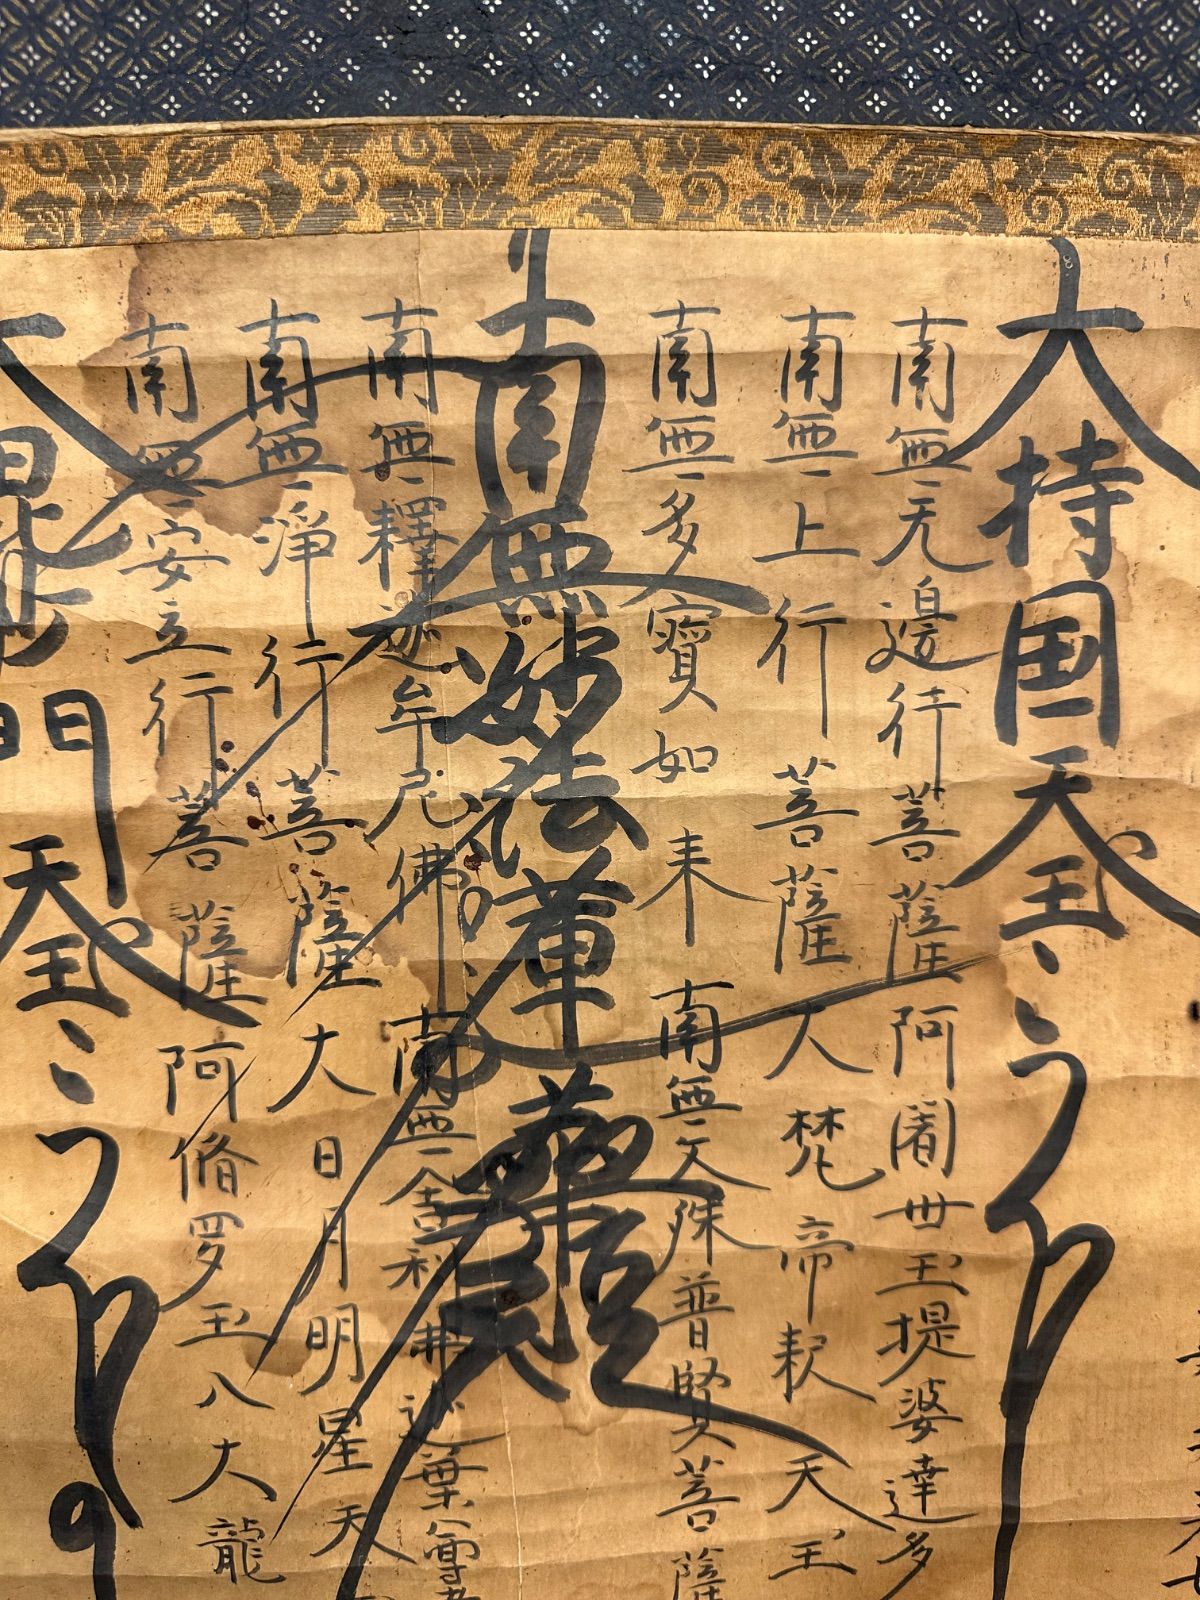 大持国天王
南無无邊行菩薩阿闍世王提婆達多
南無上行菩薩大梵帝釈天王
南無多寶如来南無文殊普賢菩薩
南無妙法蓮華經
南無釋迦牟尼佛南無舎利弗迦葉尊
南無淨行菩薩大日月明星天
南無安立行菩薩阿脩罗王八大龍
大毘沙門天王